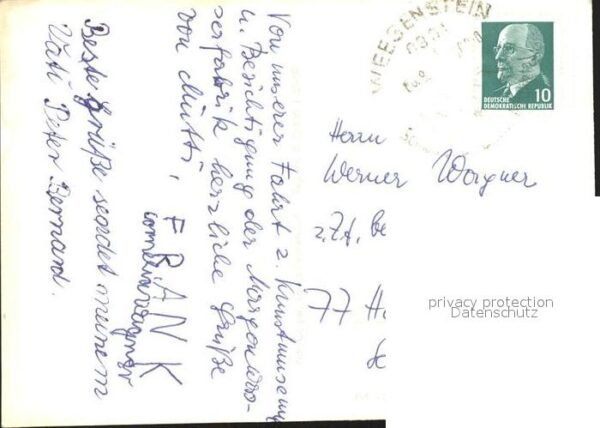 Von unserer Fahrt z. Kunstmuseum
u. Besichtigung der
herzliche Grüße
von Mutti,
FRANK
Beste Grüße sendet meinem
Vati Peter Bernard.
WEESENSTEIN
10
DEUTSCHE
DEMOKRATISCHE REPUBLIK
Herrn
Werner Wagner
z. Zt.
77
privacy protection
Datenschutz